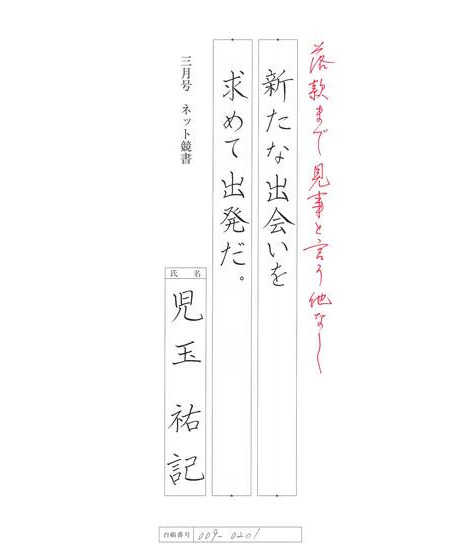 落款まで見事と言う他なし
新たな出会いを
求めて出発だ。
三月号 ネット競書
氏名
児玉 祐記
台帳番号 009-0201